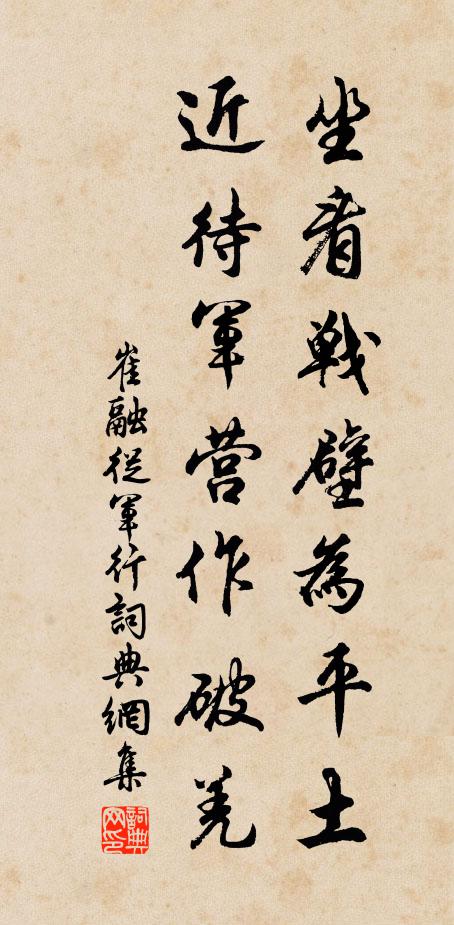 坐看戰壁為平土
近待軍營作破羌
崔融從軍行詞典網集
詞典网印